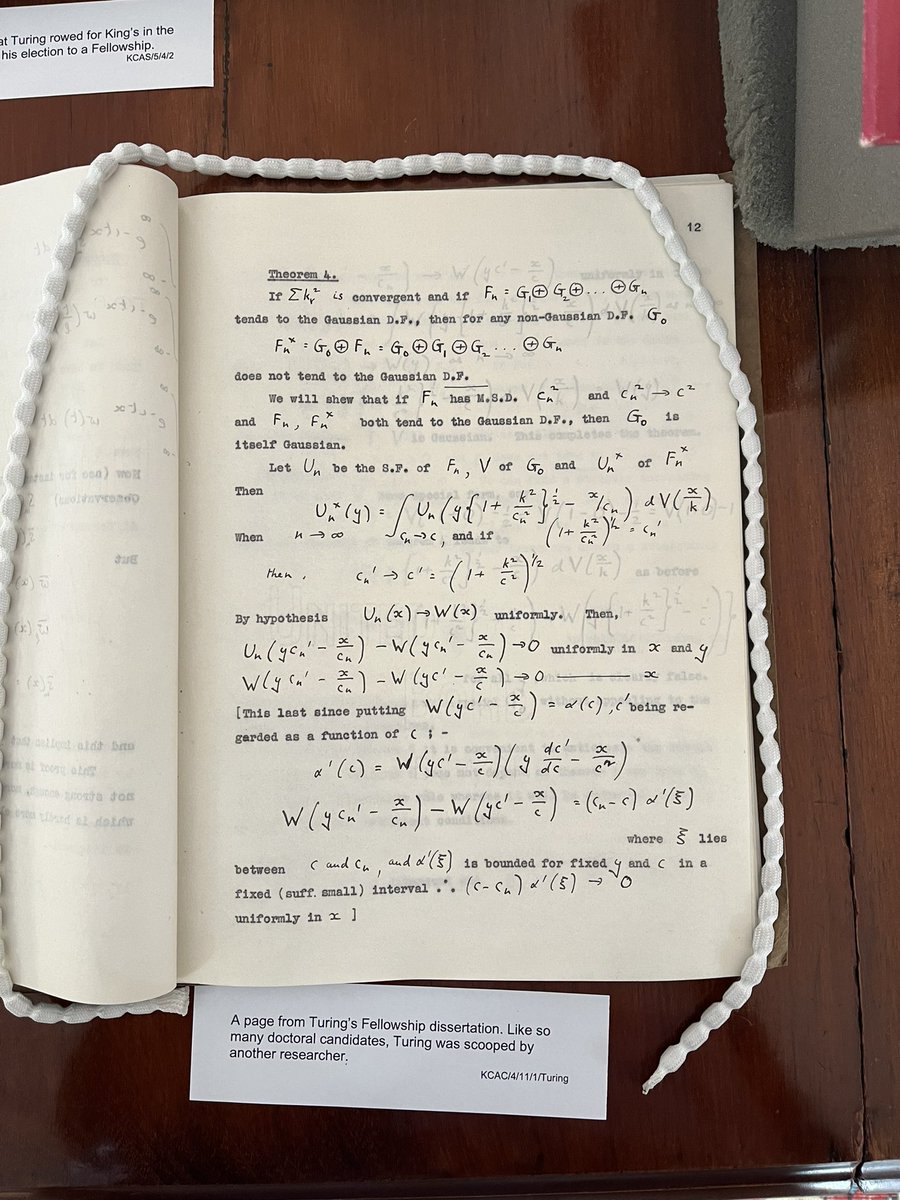 at Turing rowed for King's in the
his election to a Fellowship.
KCAS/5/4/2
12
Theorem 4.
If Σk_r² is convergent and if F_n = G_1 ⊕ G_2 ⊕ ... ⊕ G_n
tends to the Gaussian D.F., then for any non-Gaussian D.F. G_0
F_n^x = G_0 ⊕ F_n = G_0 ⊕ G_1 ⊕ G_2 ... ⊕ G_n
does not tend to the Gaussian D.F.
We will shew that if F_n has M.S.D. c_n² and c_n² → c²
and F_n, F_n^x both tend to the Gaussian D.F., then G_0 is
itself Gaussian.
Let U_n be the S.F. of F_n, V of G_0 and U_n^x of F_n^x
Then
U_n^x(y) = ∫ U_n(y{1 + k²/c_n²}^½ - x/c_n) dV(x/k)
When n → ∞ c_n → c, and if (1 + k²/c_n²)^½ = c_n'
then, c_n' → c' = (1 + k²/c²)^1/2
By hypothesis U_n(x) → W(x) uniformly. Then,
U_n(yc_n' - x/c_n) - W(yc_n' - x/c_n) → 0 uniformly in x and y
W(yc_n' - x/c_n) - W(yc' - x/c) → 0 ——— x
[This last since putting W(yc' - x/c) = α(c), c' being re-
garded as a function of c ; -
α'(c) = W(yc' - x/c)(y dc'/dc - x/c²)
W(yc_n' - x/c_n) - W(yc' - x/c) = (c_n - c) α'(ξ)
where ξ lies
between c and c_n, and α'(ξ) is bounded for fixed y and c in a
fixed (suff. small) interval ∴ (c - c_n) α'(ξ) → 0
uniformly in x ]
A page from Turing's Fellowship dissertation. Like so
many doctoral candidates, Turing was scooped by
another researcher.
KCAC/4/11/1/Turing